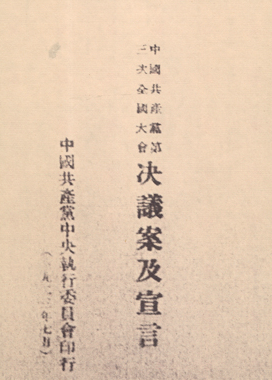 中國共產黨第
三次全國大會
决議案及宣言
中國共產黨中央執行委員會印行
（一九二三年七月）